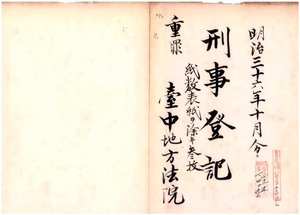 明治三十六年十月分
刑事登記
紙数表紙ヲ除キ叁枚
重罪
臺中地方法院